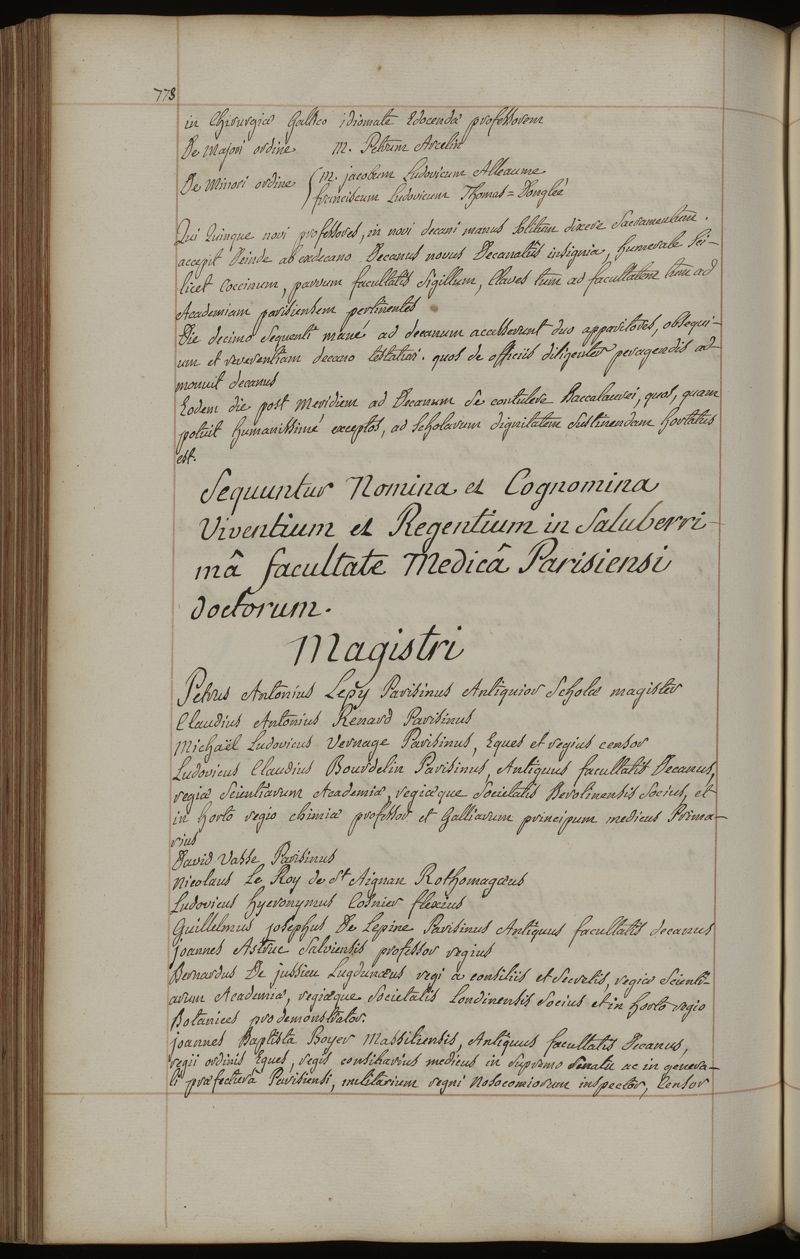 778
in Chirurgiâ Gallico idiomate Edocendâ professorem
De Majori ordine M. Petrum Arcelin
De Minori ordine { M. jacobum Ludovicum Alleaume
franciscum Ludovicum Thomas = Donglée
Qui Quinque novi professores, in novi decani manus solitum dixere Sacramentum.
accepit Deinde ab exdecano Decanus novus Decanatûs insignia, humerale sci-
licet Coccinum, parvum facultatis sigillum, Claves tum ad facultatem tum ad
Academiam parisiensem pertinentes
Die decimo Sequenti mané ad decanum accesserunt duo apparitores, obsequi-
um et reverentiam decano testaturi. quos de officiis diligenter peragendis ad-
monuit decanus
Eodem die post Meridiem ad Decanum se contulere Baccalaurei, quos, quam
potuit humanissimé exceptos, ad scholarum dignitatem sustinendam hortatus
est.
Sequuntur Nomina et Cognomina
Viventium et Regentium in Saluberri-
mâ facultate Medicâ Parisiensi
doctorum.
Magistri
Petrus Antonius Lepy Parisinus Antiquior Scholæ magister
Claudius Antonius Renard Parisinus
Michaël Ludovicus Vernage Parisinus, Eques et regius censor
Ludovicus Claudius Bourdelin Parisinus, Antiquus facultatis Decanus,
regiæ scientiarum Academiæ, regiæque Societatis Berolinensis Socius, et
in horto regio chimiæ professor et Galliarum principum medicus Prima-
rius
David Vasse Parisinus
Nicolaus Le Roy de St Aignan Rothomagæus
Ludovicus hyeronymus Cosnier flexius
Guillelmus josephus De Lepine Parisinus Antiquus facultatis decanus
joannes Astruc Salviensis professor regius
Bernardus De jussieu Lugdunæus regi a consiliis et secretis, regiæ Scienti-
arum Academiæ, regiæque Societatis Londinensis Socius et in horto regio
Botanices prodemonstrator.
joannes Baptista Boyer Massiliensis, Antiquus facultatis Decanus,
regii ordinis Eques, regis consiliarius medicus in supremo senatu ac in genera-
li præfecturâ Parisiensi, militarium regni Nosocomiorum inspector, Censor